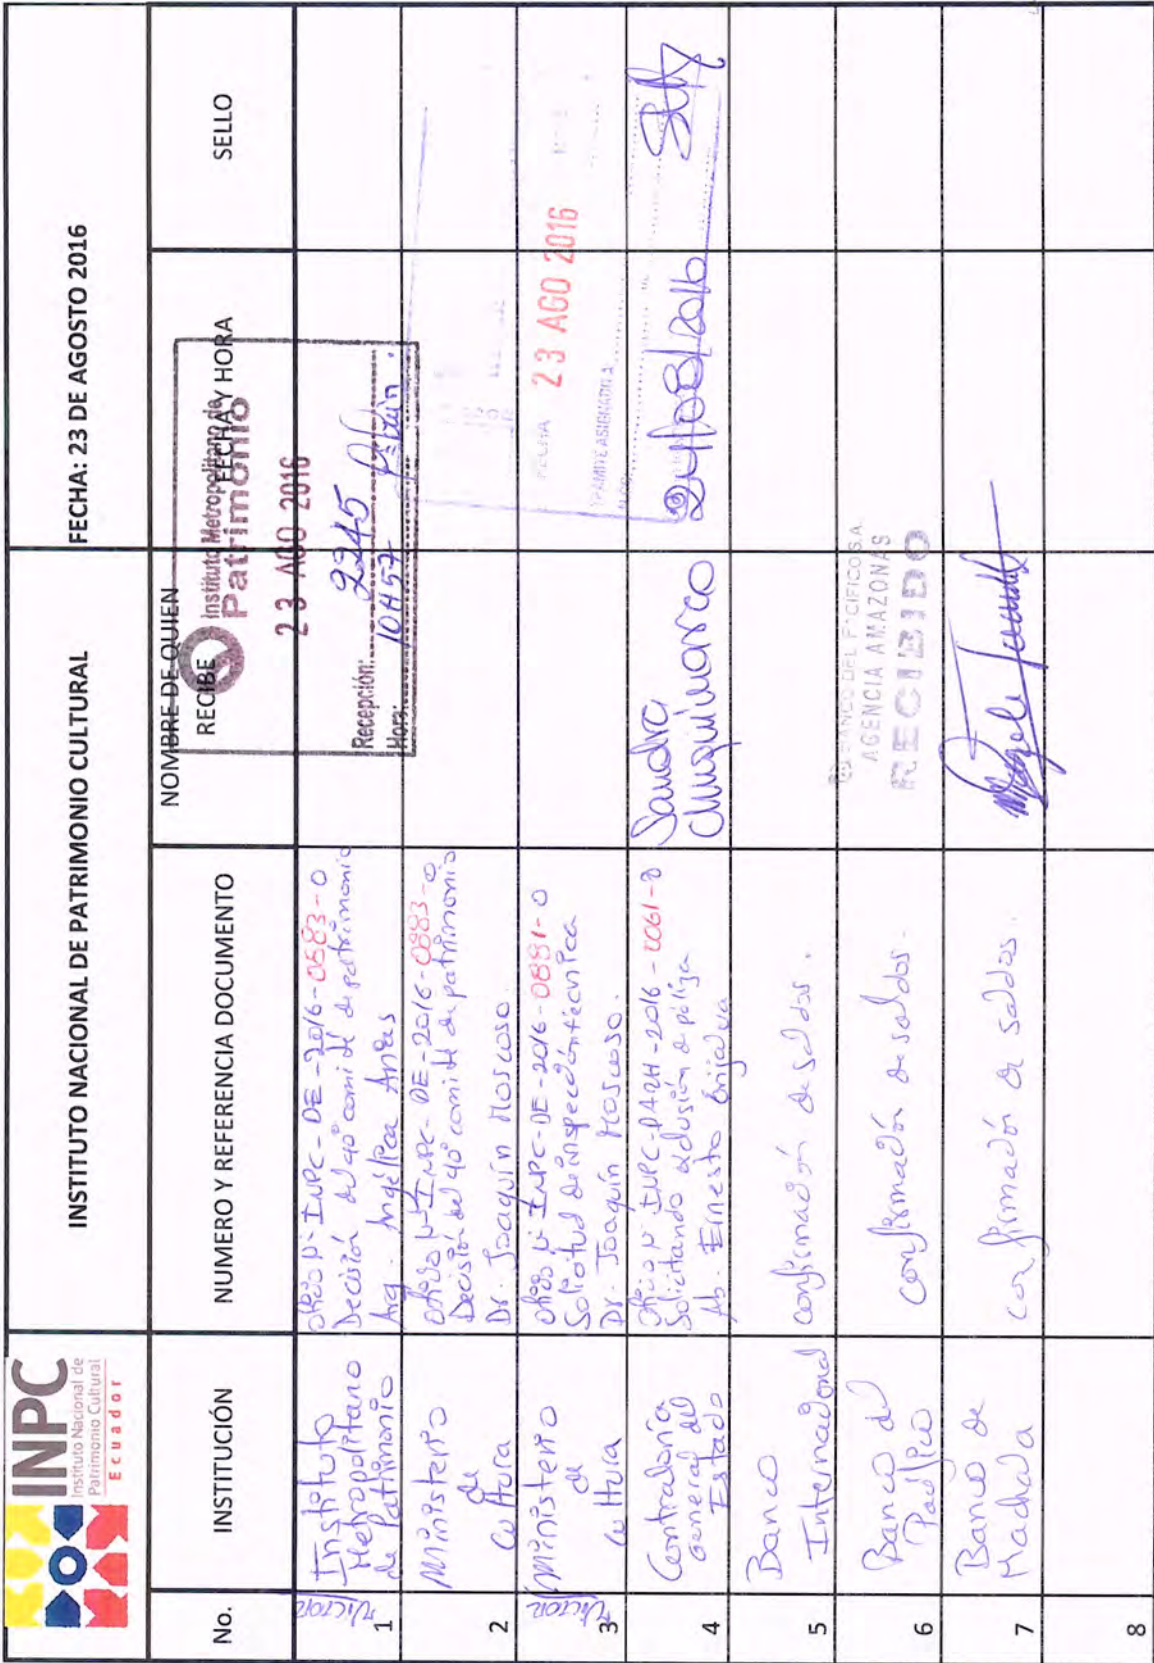 INPC
Instituto Nacional de
Patrimonio Cultural
Ecuador
INSTITUTO NACIONAL DE PATRIMONIO CULTURAL
FECHA: 23 DE AGOSTO 2016
No.
INSTITUCIÓN
NUMERO Y REFERENCIA DOCUMENTO
NOMBRE DE QUIEN
RECIBE
FECHA Y HORA
SELLO
Victor
1
Instituto
Metropolitano
de Patrimonio
Oficio Nº INPC-DE-2016-0883-O
Decisión del 40º comité de patrimonio
Arq. Angélica Arias
Instituto Metropolitano de
Patrimonio
23 AGO 2016
Recepción: 2245
Hora: 10H57
2
Ministerio
de
Cultura
Oficio Nº INPC-DE-2016-0883-O
Decisión del 40º comité de patrimonio
Dr. Joaquín Moscoso.
Victor
3
Ministerio
de
Cultura
Oficio Nº INPC-DE-2016-0881-O
Solicitud de inspección técnica
Dr. Joaquín Moscoso.
FECHA 23 AGO 2016
TRAMITE ASIGNADO A
4
Contraloría
General del
Estado
Oficio Nº INPC-DAZH-2016-0061-O
Solicitando exclusión de póliza
Ab. Ernesto
Sandra
Chuquimarca
24/08/2016
5
Banco
Internacional
confirmación de saldos.
6
Banco del
Pacífico
confirmación de saldos.
BANCO DEL PACIFICO S.A.
AGENCIA AMAZONAS
RECIBIDO
7
Banco de
Machala
confirmación de saldos.
8